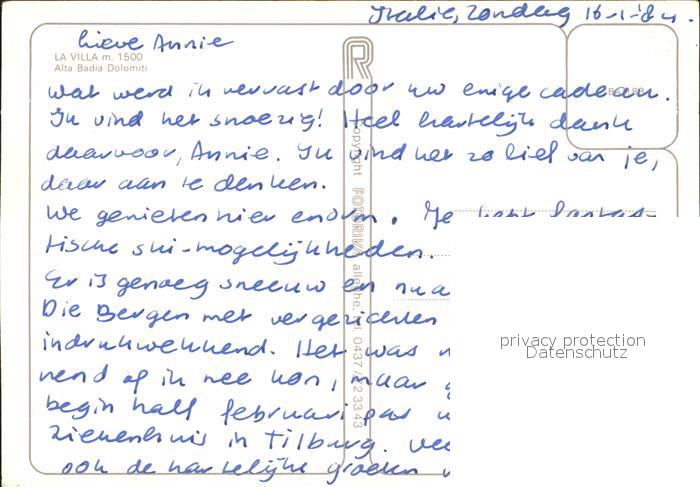 Italië, Zondag 16-1-'84.
Lieve Annie
LA VILLA m. 1500
Alta Badia Dolomiti
wat werd ik verrast door uw enige cadeau.
Ik vind het snoezig! Heel hartelijk dank
daarvoor, Annie. Ik vind het zo lief van je,
daar aan te denken.
We genieten hier enorm. Je hebt fantas-
tische ski-mogelijkheden.
Er is genoeg sneeuw en
Die Bergen met vergezichten
indrukwekkend. Het was
nend of ik mee kon, maar
begin half februari pas
ziekenhuis in Tilburg.
ook de hartelijke groeten
copyright FOTORIVA alleghe tel. 0437/723343
privacy protection
Datenschutz